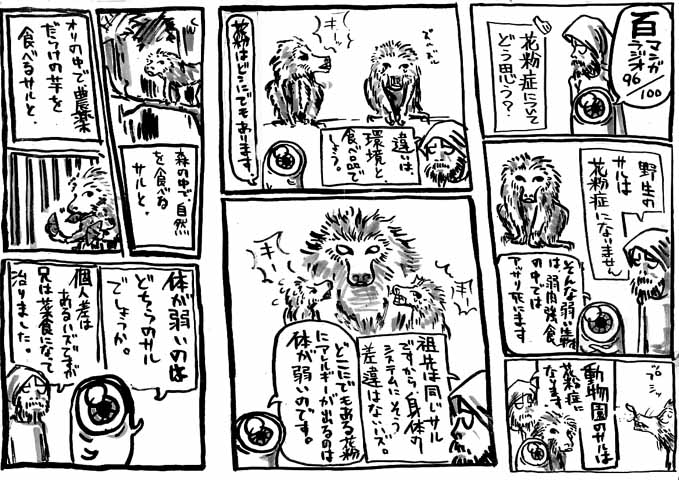 百マンガ
ラジオ
96/100
花粉症について
どう思う？
野生の
サルは
花粉症になりません
そんな弱い森
は弱肉強食
の中では
アッサリ死にます
動物園のサルは
花粉症に
なります。
ブシッ
花粉はどこにでもあります
キー
違いは、
環境と
食べ品で
しょう。
キー
キー
祖先は同じサル
ですから身体の
システムにそう
差違はないハズ。
どこにでもある花粉
にアルギーが出るのは
体が弱いのです。
オリの中で農薬
だらけの芋を
食べるサルと、
森の中で、自然
を食べる
サルと。
体が弱いのは
どちらのサル
でしょうか。
個人差は
あるハズですが
兄は菜食になって
治りました。